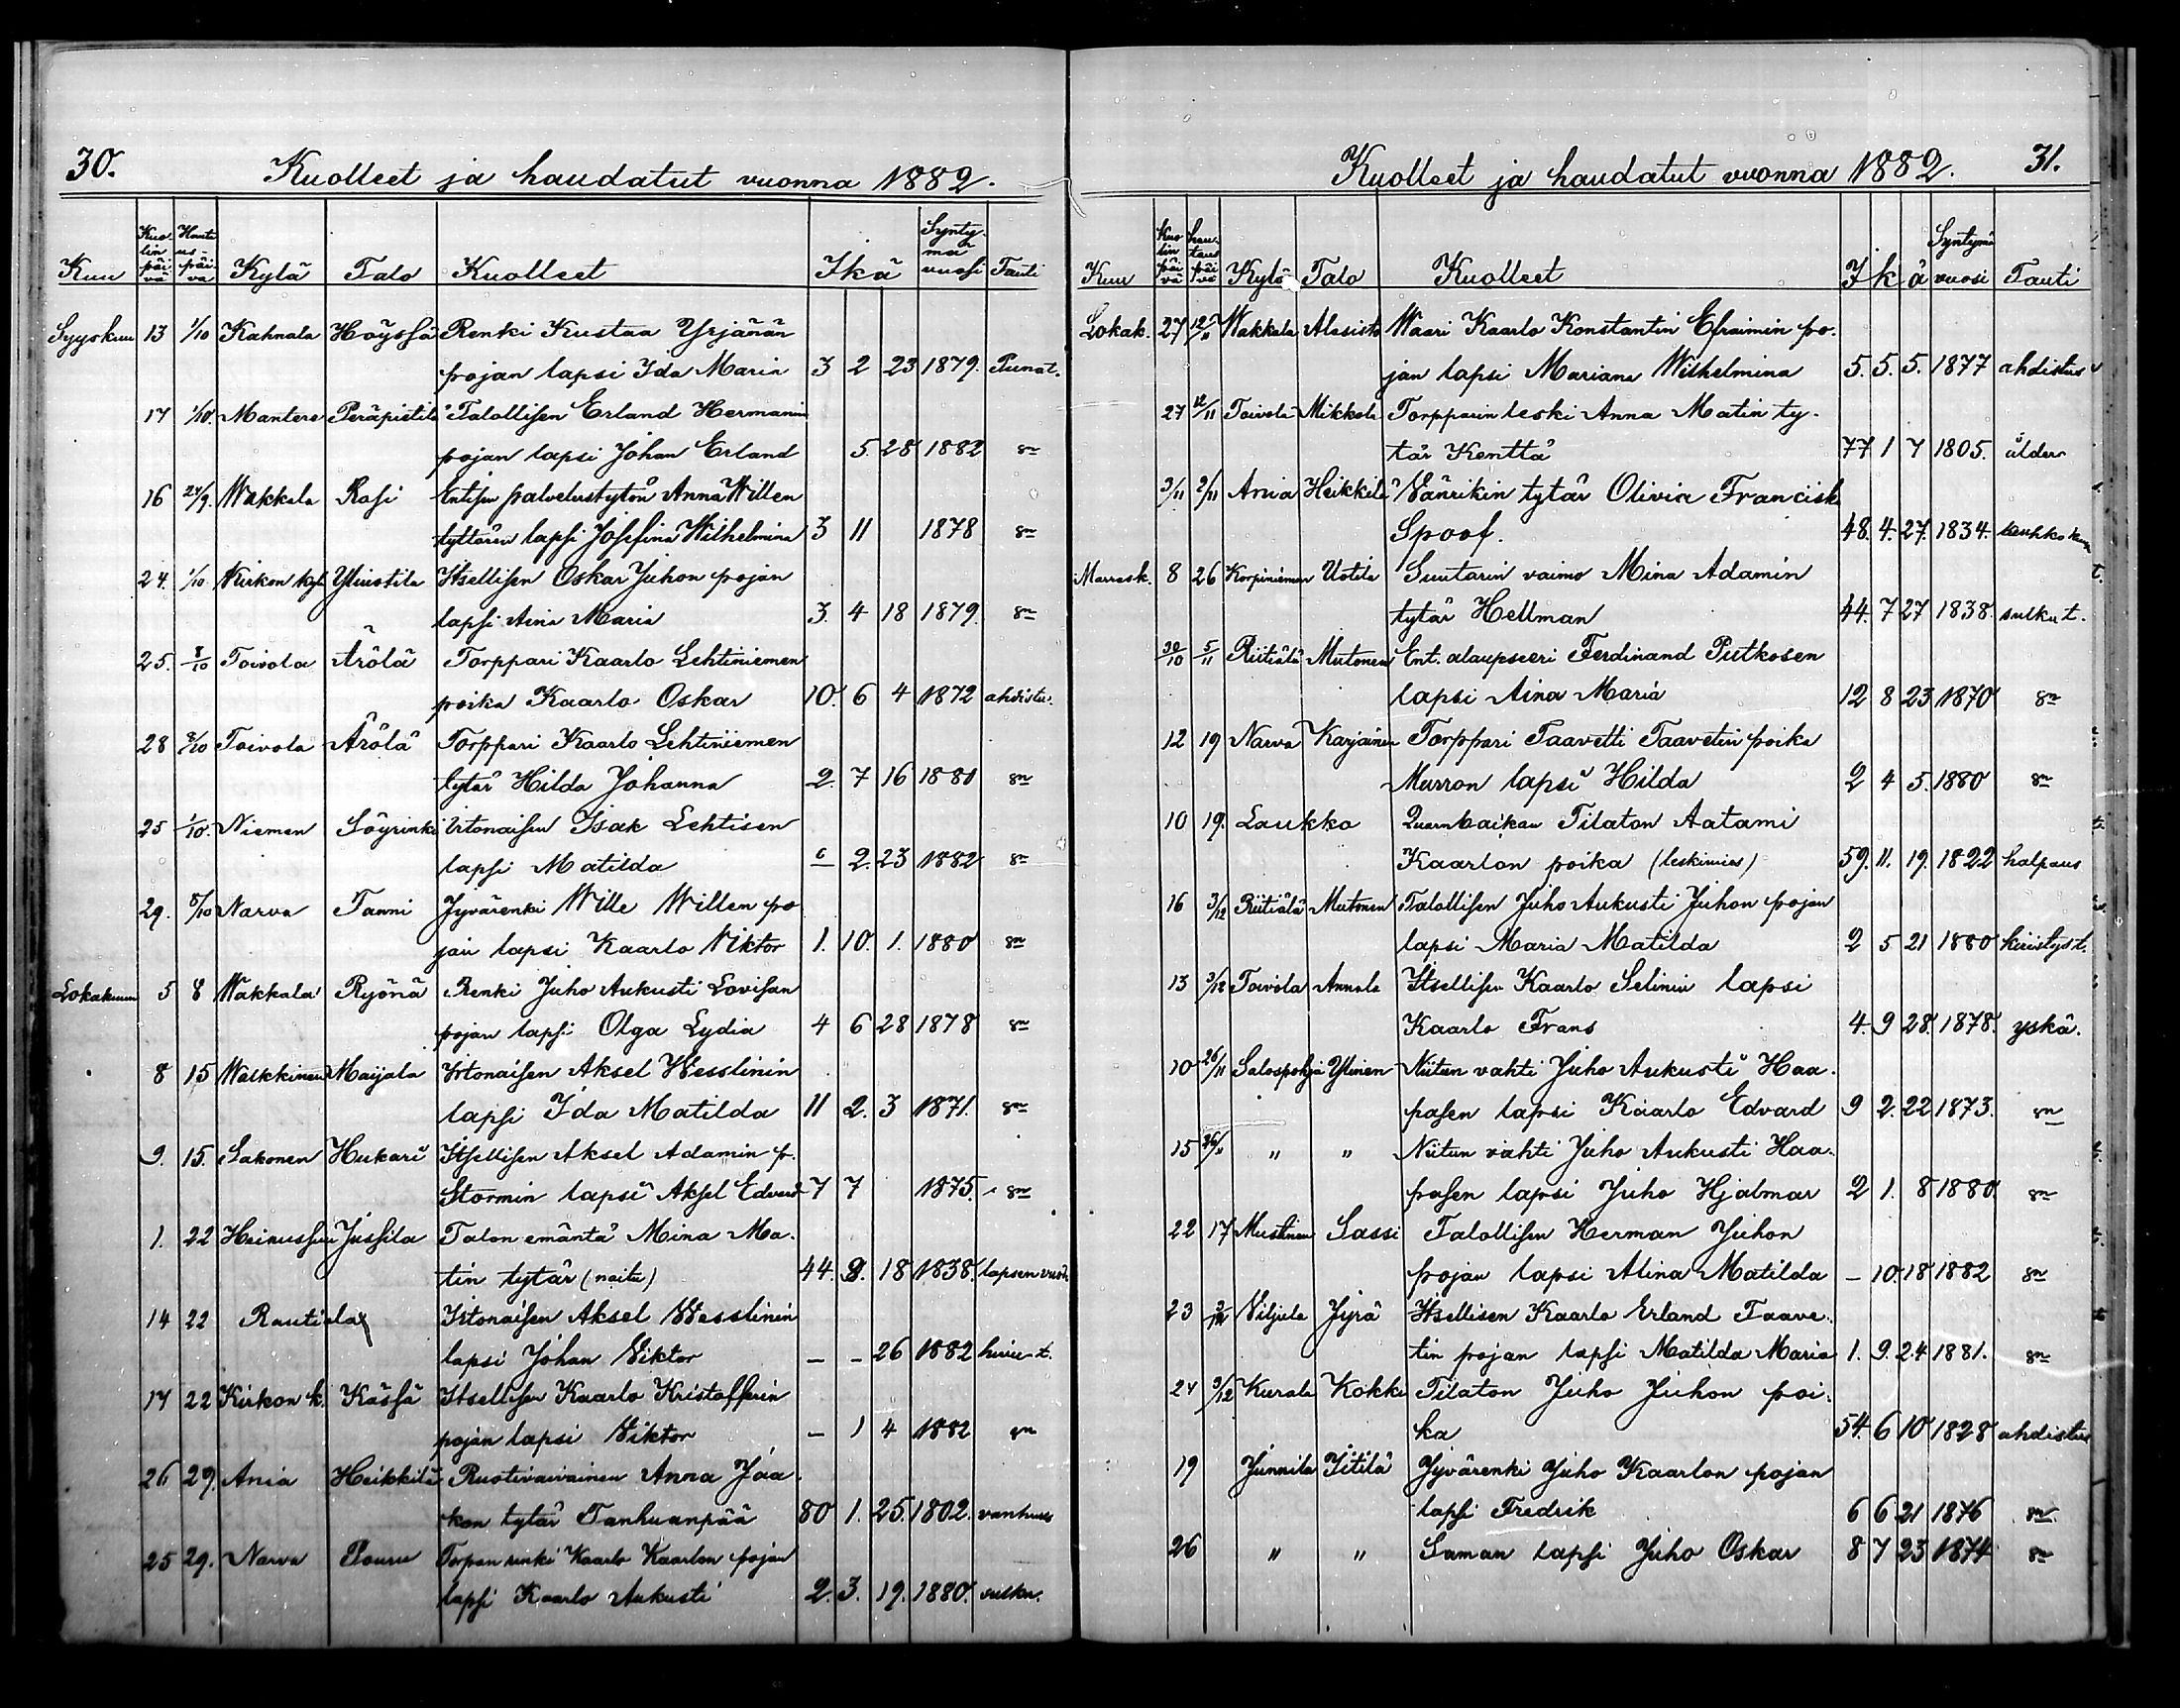 30.
Kuolleet ja haudatut vuonna 1882.
Kuu Kuolinpäivä Hautauspäivä Kylä Talo Kuolleet Ikä Syntymävuosi Tauti
Syyskuu 13 1/10 Kahnala Höyssä Renki Kustaa Yrjänän
pojan lapsi Ida Maria 3 2 23 1879. Punat.
17 1/10. Mantere Peräpietilä Talollisen Erland Hermanin
pojan lapsi Johan Erland 5. 28 1882 sn
16 24/9. Wakkala Rasi Entisen palvelustytön Anna Willen
tyttären lapsi Josefina Wilhelmina 3 11 1878 sn
24. 1/10. Kirkon kyl Yliuotila Itsellisen Oskar Juhon pojan
lapsi Aina Maria 3. 4 18 1879. sn
25. 8/10 Toivola Ärölä Torppari Kaarlo Lehtiniemen
poika Kaarlo Oskar 10. 6 4 1872 ahdistu.
28 8/10 Toivola Ärölä Torppari Kaarlo Lehtiniemen
tytär Hilda Johanna 2. 7 16 1880 sn
25 1/10. Niemen Söyrinki Irtonaisen Isak Lehtisen
lapsi Matilda 2. 23 1882 sn
29. 8/10 Narva Tanni Jyvärenki Wille Willen po
jan lapsi Kaarlo Viktor 1. 10. 1. 1880 sn
Lokakuun 5 8 Wakkala Ryönä Renki Juho Aukusti Lovisan
pojan lapsi Olga Lydia 4 6 28 1878 sn
8 15 Walkkinen Maijala Irtonaisen Aksel Wesslinin
lapsi Ida Matilda 11 2. 3 1871. sn
9. 15. Sakonen Hukari Itsellisen Aksel Adamin p.
Stormin lapsi Aksel Edvard 7 7 1875. sn
1. 22 Heinussuu Jussila Talon emäntä Mina Ma.
tin tytär (naitu) 44. 8. 18 1838. lapsen vuot.
14 22 Rautiala Irtonaisen Aksel Wesslinin
lapsi Johan Viktor — - 26 1882
17 22 Kirkon k. Kässä Itsellisen Kaarlo Kristofferin
pojan lapsi Viktor — 1 4 1882 sn
26 29. Ania Heikkilä Ruotivaivainen Anna Jaa
kon tytär Tanhuanpää 80 1. 25. 1802. vanhuus
25 29. Narva Pouru Torpan renki Kaarlo Kaarlon pojan
lapsi Kaarlo Aukusti 2. 3. 19. 1880.
Kuolleet ja haudatut vuonna 1882. 31.
Kuu Kuolinpäivä hautauspäivä Kylä Talo Kuolleet Ikä Syntymävuosi Tauti
Lokak. 27 12/11 Wakkala Alasisto Waari Kaarlo Konstantin Efraimin po.
jan lapsi Mariana Wilhelmina 5. 5. 5. 1877 ahdistus
27 12/11 Toivola Mikkola Torpparin leski Anna Matin ty.
tär Kenttä 77 1 7 1805. ålder
3/11 Ania Heikkilä Vänrikin tytär Olivia Francisk
Spoof. 48. 4. 27. 1834.
Marrask. 8 26 Korpiniemen Uotila Suutarin vaimo Mina Adamin
tytär Hellman 44. 7 27 1838. sulku t.
30/10 5/11 Riitiälä Mutonen Ent. alaupseeri Ferdinand Putkosen
lapsi Aina Maria 12 8 23 1870 sn
12 19 Narva Karjainen Torppari Taavetti Taavetin poika
Murron lapsi Hilda 2 4 5. 1880 sn
10 19. Laukko Tilaton Aatami
Kaarlon poika (leskimies) 59. 11. 19. 1822 halpaus
16 3/12 Riitiälä Mutonen Talollisen Juho Aukusti Juhon pojan
lapsi Maria Matilda 2 5 21 1880 kuristust.
13 3/12 Toivola Annala Itsellisen Kaarlo Selinin lapsi
Kaarlo Frans 4. 9 28. 1878. yskä.
10 26/11 Salospohja Ylinen Niitun vahti Juho Aukusti Haa.
pasen lapsi Kaarlo Edvard 9 2. 22 1873. sn
15 26/11 " " Niitun vahti Juho Aukusti Haa.
pasen lapsi Juho Hjalmar 2 1. 8 1880. sn
22 17 Mustinen Sassi Talollisen Herman Juhon
pojan lapsi Alina Matilda — 10 18 1882 sn
23 Viljula Jyrä Itsellisen Kaarlo Erland Taave.
tin pojan lapsi Matilda Maria 1. 9. 24 1881. sn
24 3/12 Kurala Kokki Tilaton Juho Juhon poi.
ka 54. 6 10 1828 ahdistus
19 Junnila Iitilä Jyvärenki Juho Kaarlon pojan
lapsi Fredrik 6 6 21 1876 sn.
26 " " Saman lapsi Juho Oskar 8 7 23 1874 sn